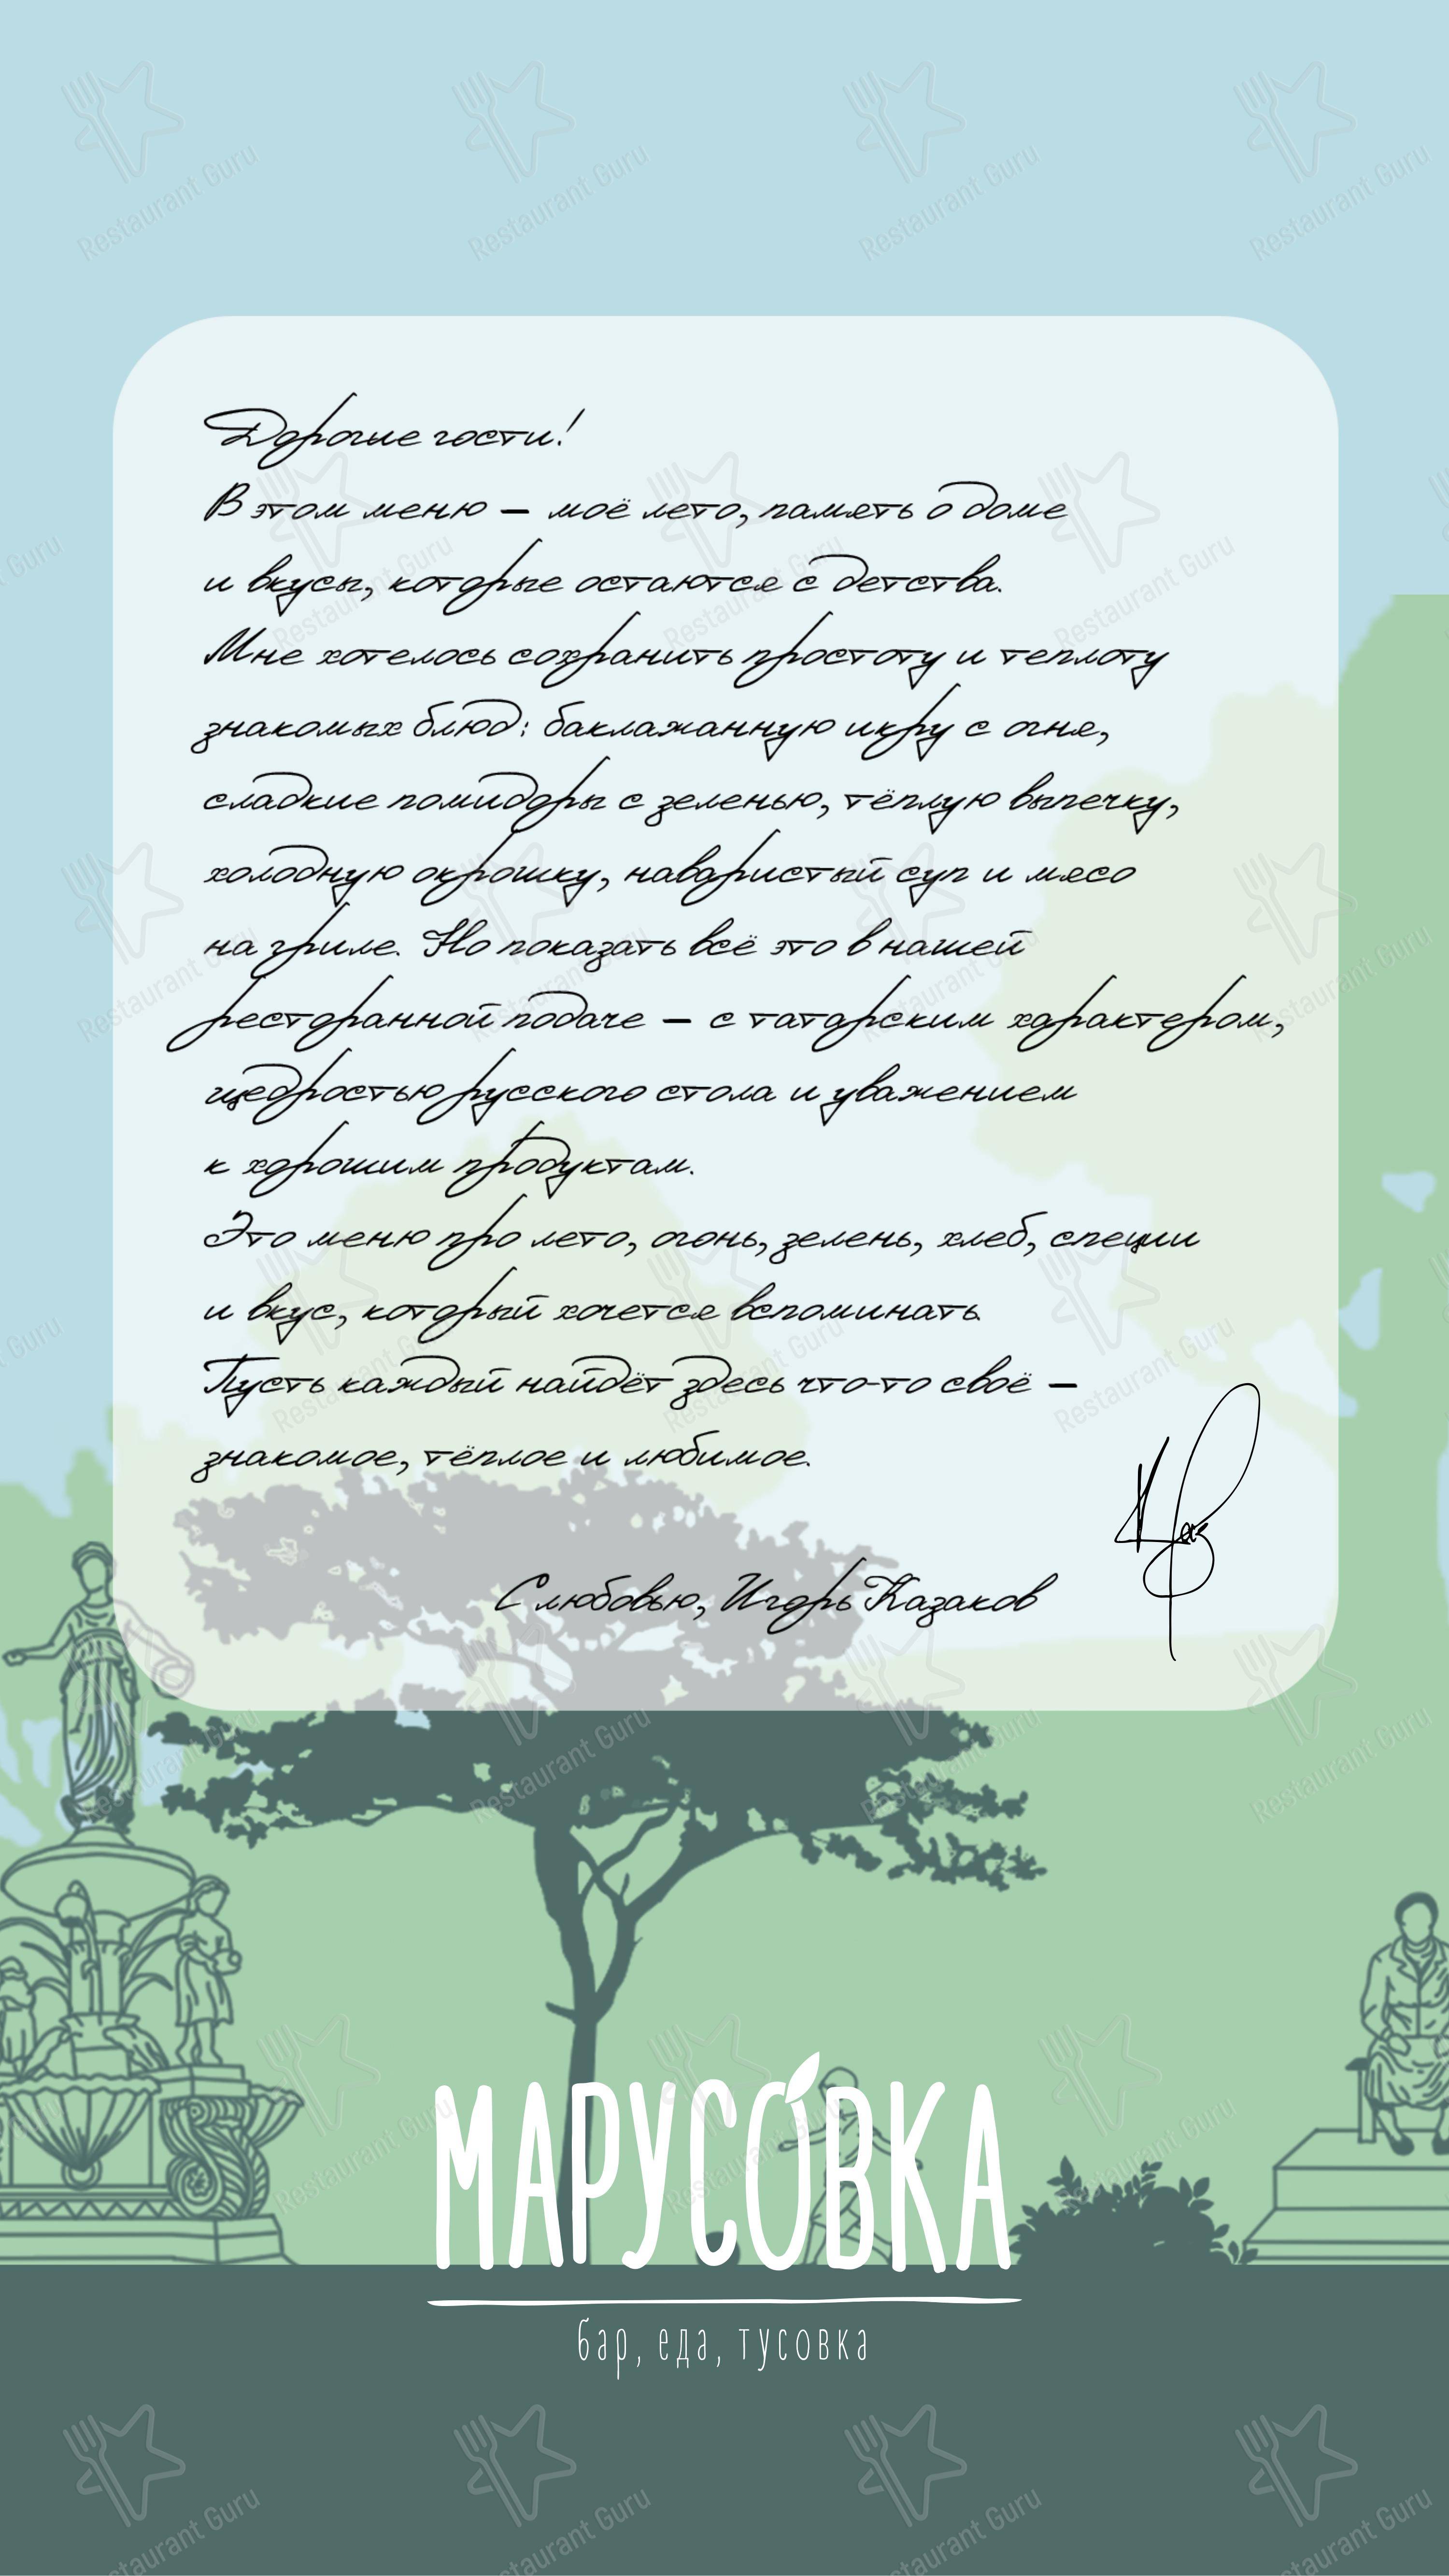 Дорогие гости!
В этом меню — моё лето, память о доме
и вкусы, которые остаются с детства.
Мне хотелось сохранить простоту и теплоту
знакомых блюд: баклажанную икру с огня,
сладкие помидоры с зеленью, тёплую выпечку,
холодную окрошку, наваристый суп и мясо
на гриле. Но показать всё это в нашей
ресторанной подаче — с татарским характером,
щедростью русского стола и уважением
к хорошим продуктам.
Это меню про лето, огонь, зелень, хлеб, специи
и вкус, который хочется вспоминать.
Пусть каждый найдёт здесь что-то своё —
знакомое, тёплое и любимое.
С любовью, Игорь Казаков
МАРУСОВКА
бар, еда, тусовка
Restaurant Guru